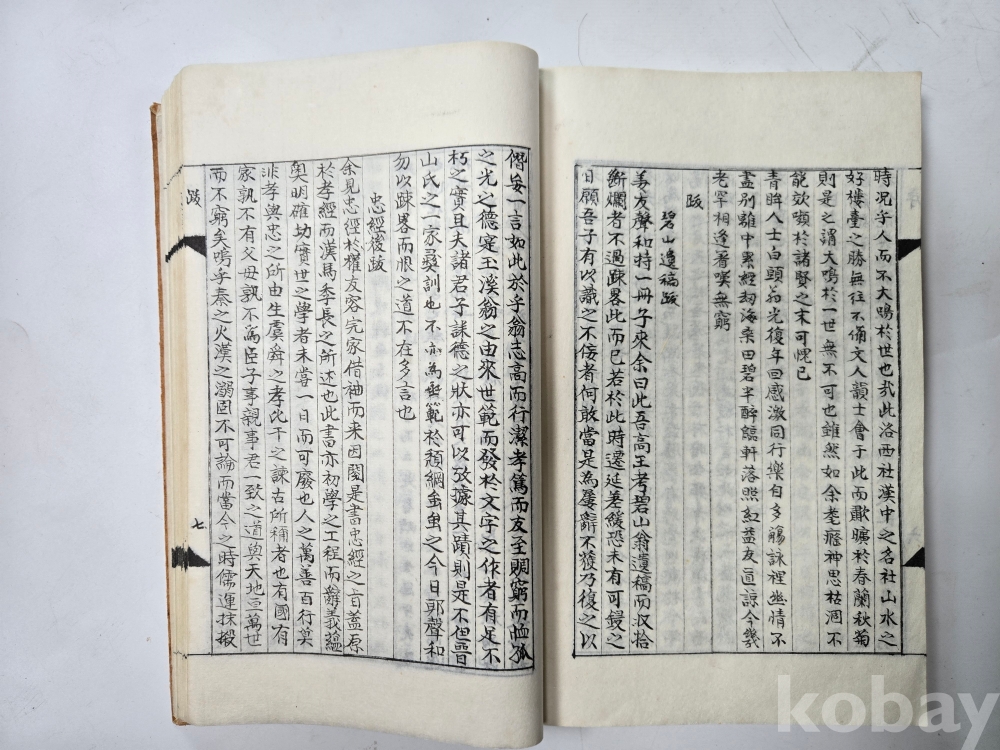 時况乎人而不大鳴於世也哉此洛西社漢中之名社山水之
好樓臺之勝無往不俑文人韻士會于此而歡暢於春蘭秋菊
則是之謂大鳴於一世無不可也雖然如余耄癃神思枯涸不
能效嚬於諸賢之末可愧已
青眸人士白頭翁光復年回感激同行樂自多觴詠裡幽情不
盡別離中累經劫海桒田碧半醉臨軒落照紅益友直諒今幾
老罕相逢着嘆無窮
跋
碧山遺稿跋
姜友聲和持一冊子來余曰此吾高王考碧山翁遺稿而収拾
斷爛者不過疎畧此而已若於此時遷延差緩恐未有可鋟之
日願吾子有以識之不侫者何敢當是為屢辭不獲乃復之以
僭妄一言如此於乎翁志高而行潔孝篤而友至賙窮而恤孤
之光之德寔玉溪翁之由來世範而發於文字之作者有足不
朽之實且夫諸君子誄德之狀亦可以攷據其蹟則是不但晉
山氏之一家奬訓也不亦為垂範於頹綱蚩蚩之今日耶聲和
勿以疎畧而恨之道不在多言也
忠經後跋
余見忠經於櫂友客完家借袖而来因閱是書忠經之言盖原
於孝經而漢馬季長之所述也此書亦初學之工程而辭義蘊
奧明確切實世之學者未嘗一日而可廢也人之萬善百行莫
非孝與忠之所由生虞舜之孝比干之諫古所稱者也有國有
家孰不有父母孰不為臣子事親事君一致之道與天地亘萬世
而不窮矣嗚乎秦之火漢之溺固不可論而當今之時儒運抹摋
跋
七
kobay